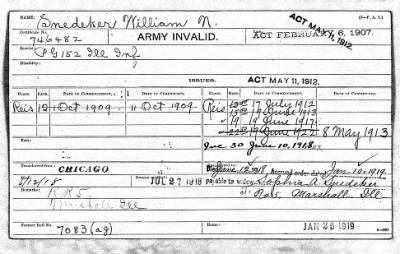 NAME: Snedeker William N. (3—P. A. I.)
Certificate No. ARMY INVALID. ACT FEBRUARY 6, 1907. ACT MAY 11, 1912.
746482
Service:
G 152 Ill Inf
Disability:
ISSUES. ACT MAY 11, 1912.
CLASS. RATE. DATE OF COMMENCEMENT. DATE OF CERTIFICATE. CLASS. RATE. DATE OF COMMENCEMENT. DATE OF CERTIFICATE.
Reis 12 1 Oct 1909 11 Oct 1909 Reis 17 July 1912
19 June 1917
19 June 1922 8 May 1913
Inc 30 June 10, 1918
Transferred from CHICAGO Died June 12 1918, Accrued order dated Jan 10, 1919
9/12/18 JUL 27 1918 Payable to wid Sophia A. Snedeker
Remarks: R R 5 Marshall, Ill.
Marshall Ill
Former Roll No. 7083 (ag) JAN 23 1919